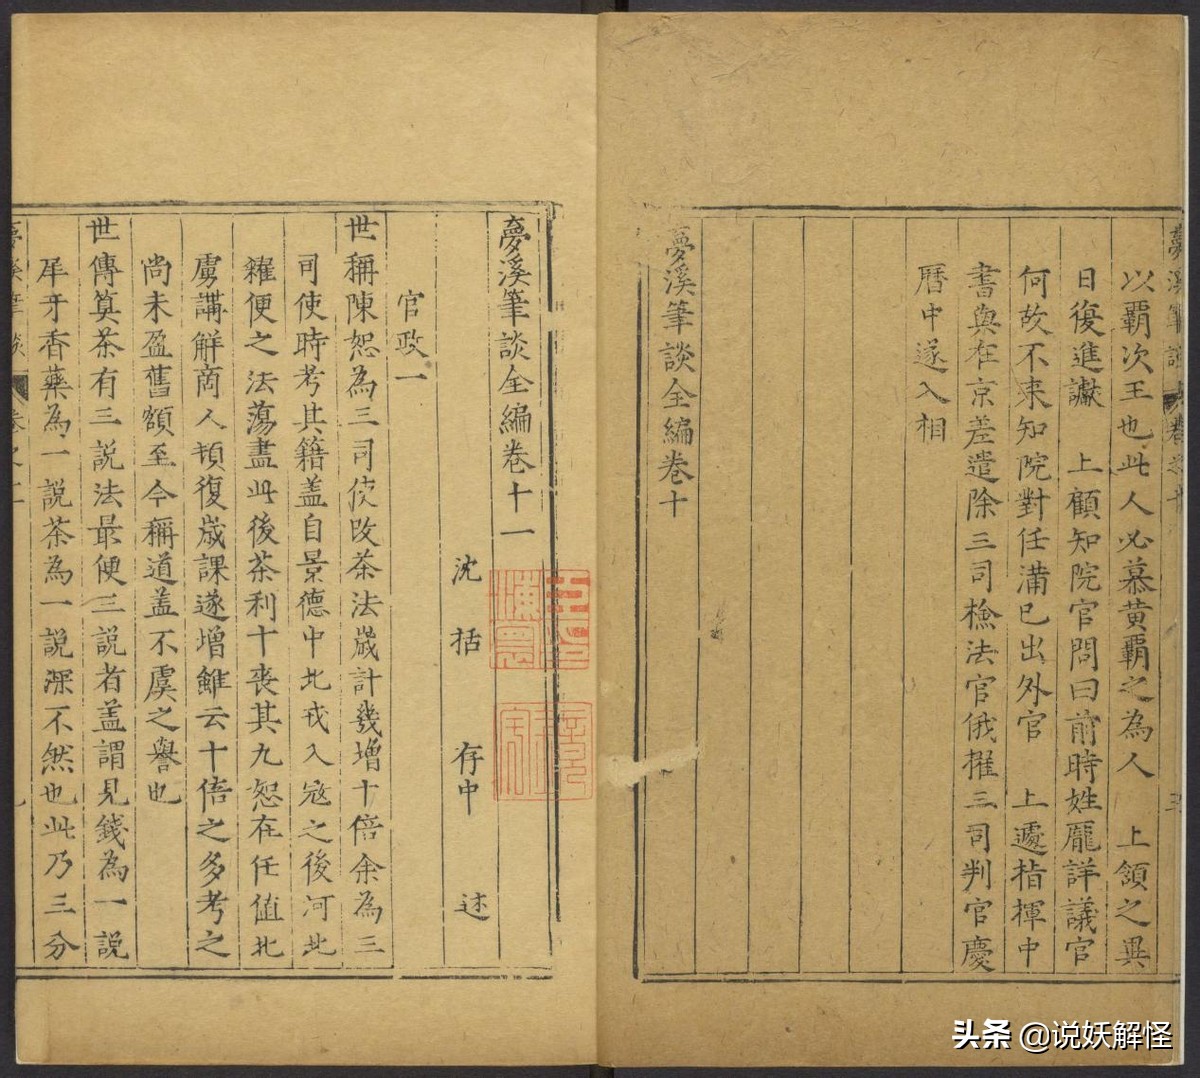 以霸次王也此人必慕黃霸之為人　上頷之異
日復進讞　上顧知院官問曰前時姓龐詳議官
何故不来知院對任滿已出外官　上遽指揮中
書與在京差遣除三司檢法官俄擢三司判官慶
曆中遂入相
夢溪筆談全編卷十
夢溪筆談全編卷十一
沈　括　存中　述
官政一
世稱陳恕為三司使改茶法歲計幾增十倍余為三
司使時考其籍盖自景德中北戎入宼之後河北
糴便之法蕩盡此後茶利十喪其九恕在任值北
虜講解商人頓復歲課遂增雖云十倍之多考之
尚未盈舊額至今稱道盖不虞之譽也
世傳筭茶有三說法最便三說者盖謂見錢為一說
犀牙香藥為一說茶為一說深不然也此乃三分
头条 @说妖解怪